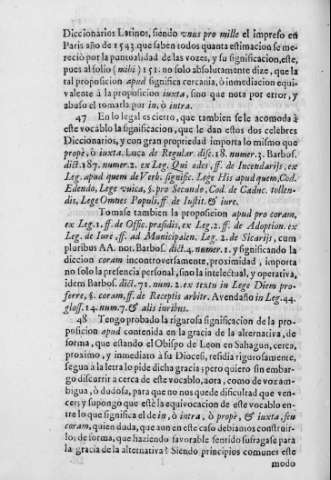 Diccionarios Latinos, siendo vnus pro mille el impreso en
Paris año de 1543. que saben todos quanta estimacion se me-
reciò por la puntualidad de las vozes, y su significacion, este,
pues al folio (mihi) 151. no solo absolutamente dize, que la
tal proposicion apud significa cercania, ò inmediacion equi-
valente à la proposicion iuxta, sino que nota por error, y
abuso el tomarla por in, ò intra.
47 En lo legal es cierto, que tambien se le acomoda à
este vocablo la significacion, que le dan estos dos celebres
Diccionarios, y con gran propriedad importa lo mismo que
propè, ò iuxta. Luca de Regular. disc. 18. numer. 3. Barbos.
dict. 187. numer. 2. ex Leg. Qui ades, ff. de Incendarijs, ex
Leg. apud quem de Verb. signific. Lege His apud quem, Cod.
Edendo, Lege vnica, §. pro Secundo, Cod. de Caduc. tollen-
dis, Lege Omnes Populi, ff. de Iustit. & iure.
Tomase tambien la proposicion apud pro coram,
ex Leg. 1. ff. de Offic. præsidis, ex Leg. 2. ff. de Adoption. ex
Leg. de Iure, ff. ad Municipalen. Leg. 2. de Sicarijs, cum
pluribus AA. not. Barbos. dict. 4. numer. 1. y significando la
diccion coram introversamente, proximidad, importa
no solo la presencia personal, sino la intelectual, y operativa,
idem Barbos. dict. 71. num. 2. ex textu in Lege Diem pro-
ferre, §. coram, ff. de Receptis arbitr. Avendaño in Leg. 44.
gloss. 14. num. 7. & alij iuribus.
48 Tengo probado la rigurosa significacion de la pro-
posicion apud contenida en la gracia de la alternativa, de
forma, que estando el Obispo de Leon en Sahagun, cerca,
proximo, y inmediato à su Diocesi, residia rigurosamente,
segun à la letra lo pide dicha gracia; pero quiero sin embar-
go discurrir a cerca de este vocablo, aora, como de voz am-
bigua, ò dudosa, para que no nos quede dificultad que ven-
cer; y supongo que estè la equivocacion de este vocablo en-
tre lo que significa el de in, ò intra, ò propè, & iuxta, seu
coram, quien duda, que aun en este caso debiamos construir-
lo; de forma, que haziendo favorable sentido sufragase para
la gracia de la alternativa? Siendo principios comunes este
modo